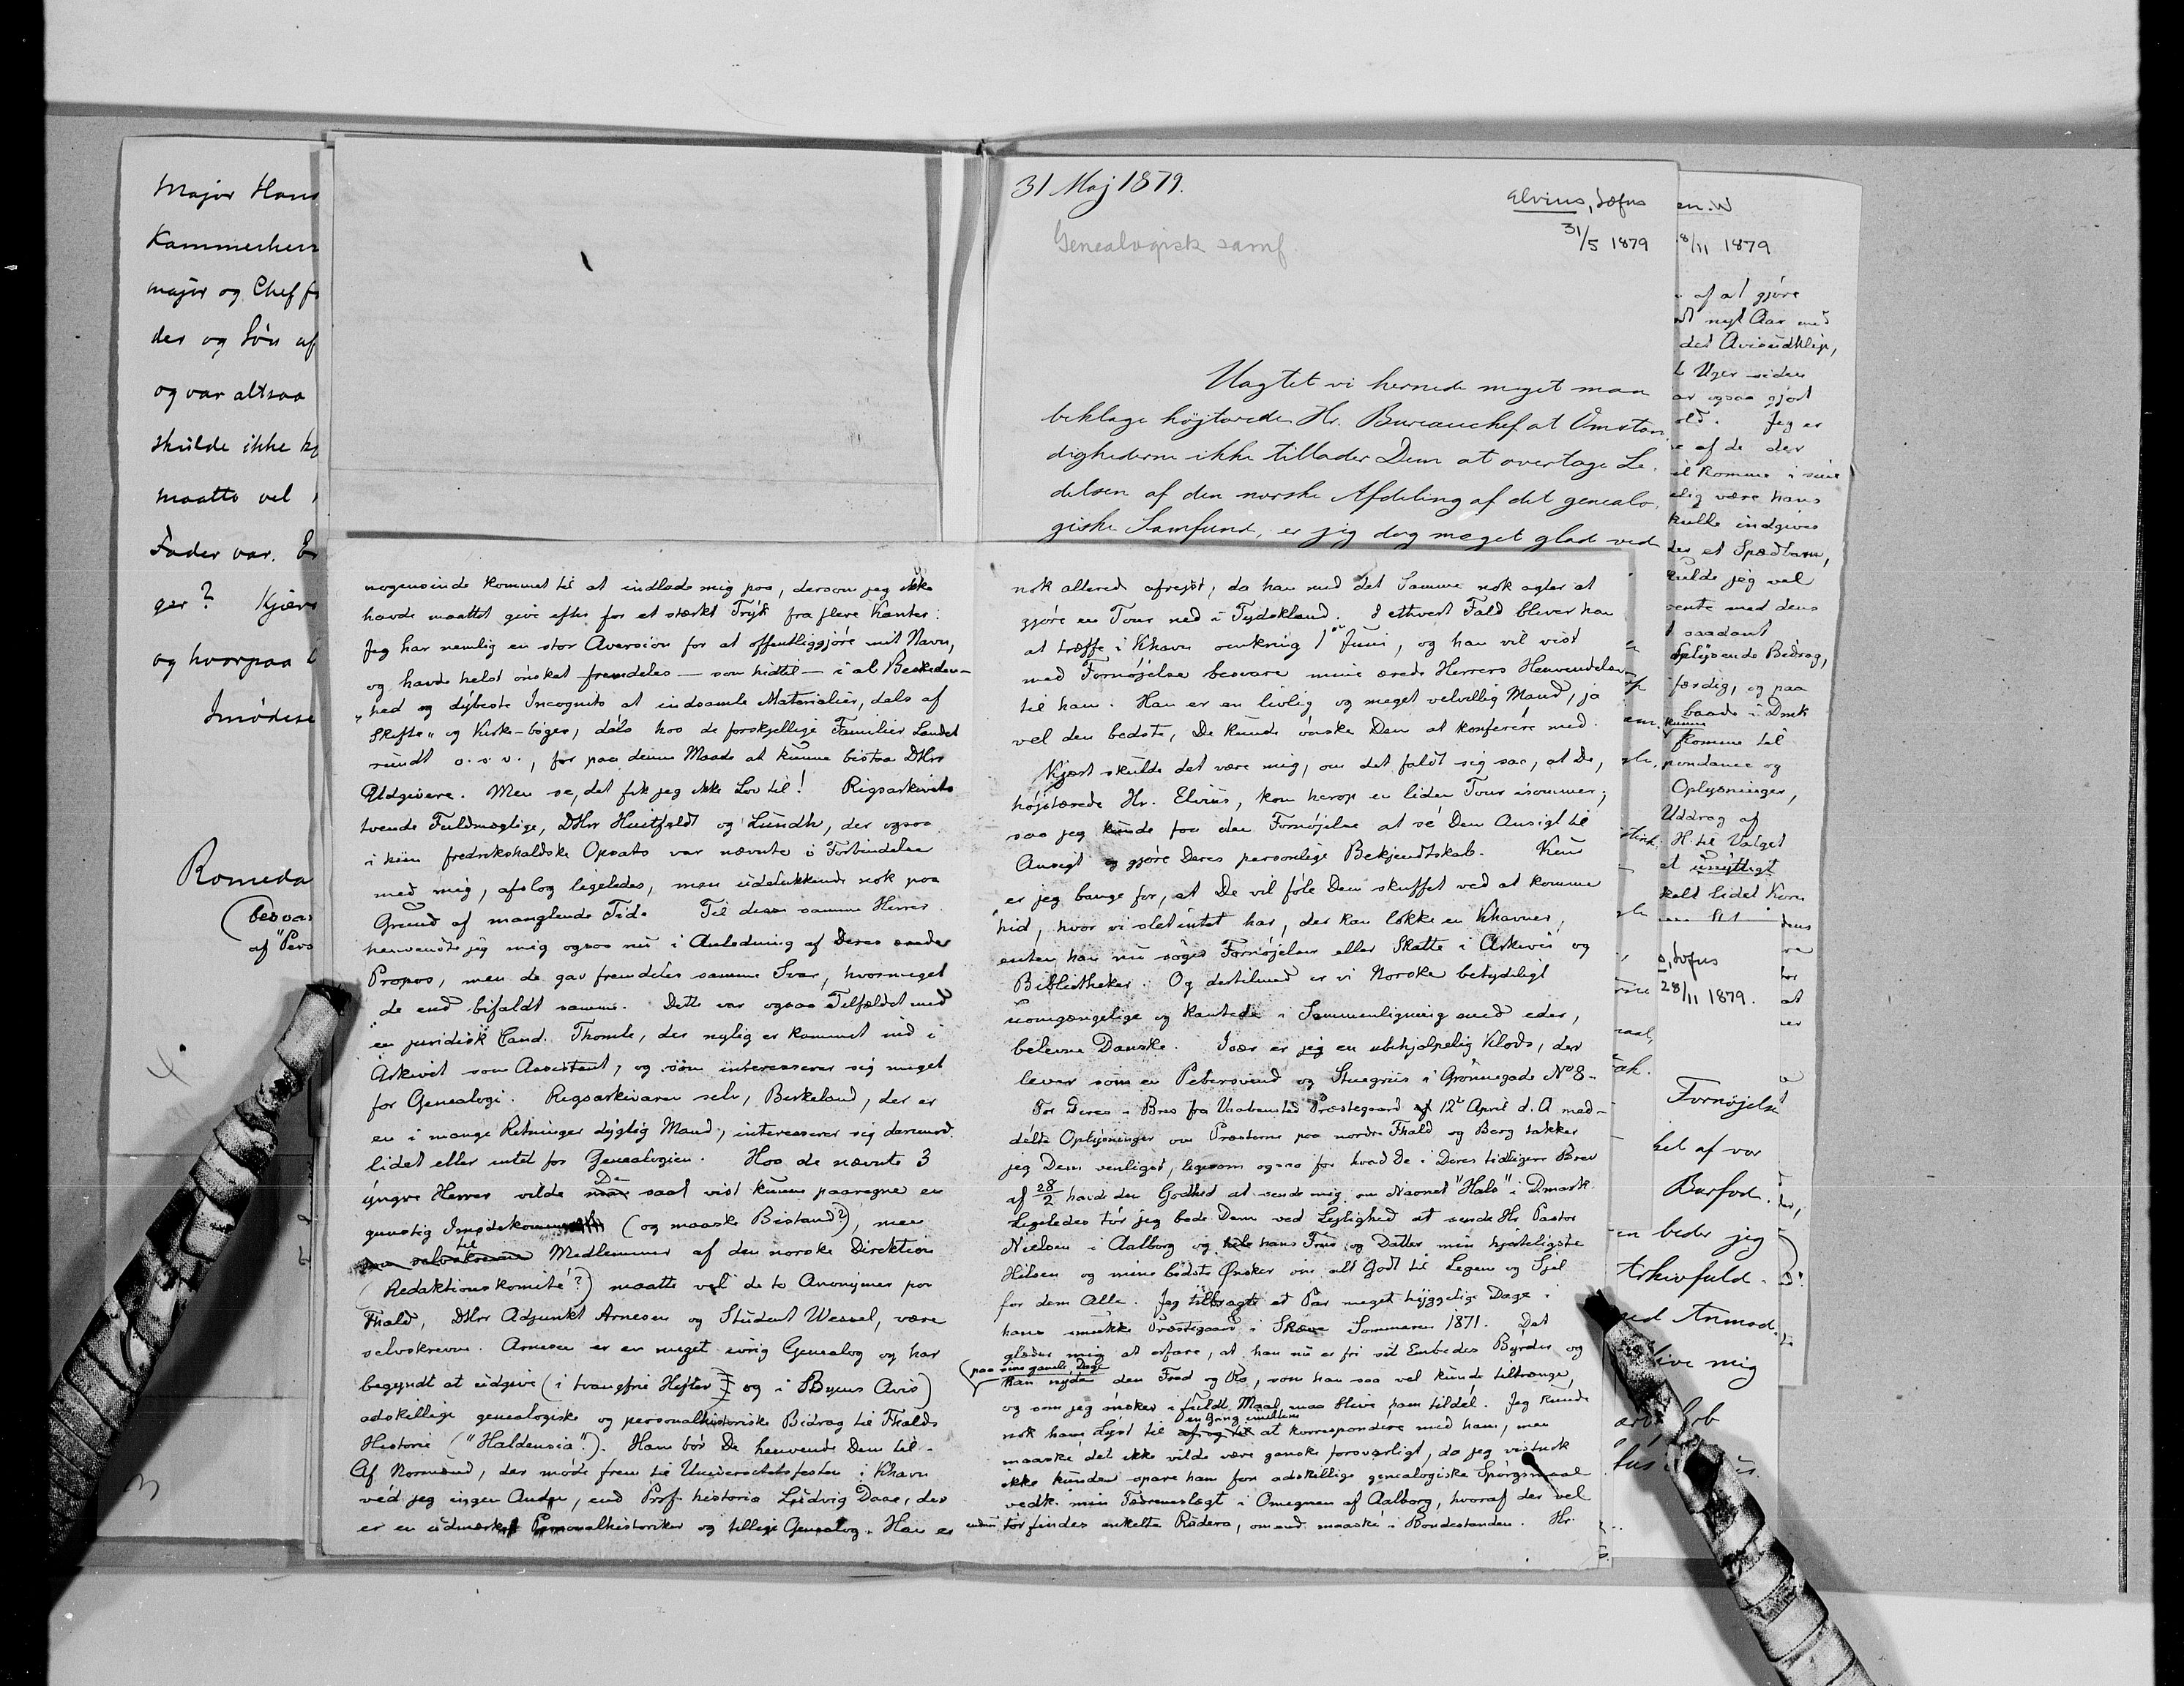 Major Hans
Kammerherr
major og Chef f
der og Søn af
og var altsaa
skulde ikke
maatte vel
Fader var.
ger? Kjære
og hvorpaa
Imødese
Romeda
(besva
af "Pers
31 Maj 1879.
Elvius, Sofus
31/5 1879
Genealogisk samf.
Uagtet vi hernede meget maa
beklage højtærede Hr. Bureauchef at Omstæn
dighederne ikke tillader Dem at overtage Le
delsen af den norske Afdeling af det genealo
giske Samfund, er jeg dog meget glad ved
nogensinde kommet til at indlade mig paa, dersom jeg ikke
havde maattet give efter for et stærkt Tryk fra flere Kanter:
Jeg har nemlig en stor Aversion for at offentliggjøre mit Navn,
og havde helst ønsket fremdeles — som hidtil — i al Beskeden-
hed og dybeste Incognito at indsamle Materialier, dels af
Skifte- og Kirke-bøger, dels hos de forskjellige Familier Landet
rundt o. s. v., for paa denne Maade at kunne bistaa DHrr
Udgivere. Men se, det fik jeg ikke Lov til! Rigsarkivets
tvende Fuldmægtige, DHrr Huitfeldt og Lundh, der ogsaa
i hiin fredrikshaldske Opsats var nævnte i Forbindelse
med mig, afslog ligeledes, men udelukkende nok paa
Grund af manglende Tid. Til disse samme Herrer
henvendte jeg mig ogsaa nu i Anledning af Deres ærede
Propos, men de gav fremdeles samme Svar, hvormeget
de end bifaldt samme. Dette var ogsaa Tilfældet med
en juridisk Cand. Thomle, der nylig er kommet ind i
Arkivet som Assistent, og som interesserer sig meget
for Genealogi. Rigsarkivaren selv, Birkeland, der er
en i mange Retninger dygtig Mand, interesserer sig derimod
lidet eller intet for Genealogien. Hos de nævnte 3
yngre Herrer vilde De saat vist kunne paaregne en
gunstig Imødekommen (og maaske Bistand?), men
til Medlemmer af den norske Direktion
(Redaktionskomite'?) maatte vel de to Anonymer paa
Fhald, DHrr Adjunkt Arnesen og Student Wessel, være
selvskrevne. Arnesen er en meget ivrig Genealog og har
begyndt at udgive (i tvangfrie Hefter og i Byens Avis)
adskillige genealogiske og personalhistoriske Bidrag til Fhalds
Historie ("Haldensia"). Ham bør De henvende Dem til.
Af Normænd, der møde frem til Universitetsfesten i Khavn
véd jeg ingen Anden, end Prof. historia Ludvig Daae, der
er en udmærket Personalhistoriker og tillige Genealog. Han er
nok allerede afrejst, da han med det Samme nok agter at
gjøre en Tour ned i Tydskland. I ethvert Fald bliver han
at træffe i Khavn omkring 1ste Juni, og han vil vist
med Fornøjelse besvare mine ærede Herrers Henvendelser
til ham. Han er en livlig og meget velvillig Mand, ja
vel den bedste, De kunde ønske Dem at konferére med.
Kjært skulde det være mig, om det faldt sig saa, at De,
højstærede Hr. Elvius, kom herop en liden Tour isommer;
saa jeg kunde faa den Fornøjelse at sé Dem Ansigt til
Ansigt og gjøre Deres personlige Bekjendtskab. Kun
er jeg bange for, at De vil føle Dem skuffet ved at komme
hid, hvor vi slet intet har, der kan lokke en Khavner,
enten han nu søger Fornøjelser eller Skatte i Arkiver og
Bibliotheker. Og dertilmed er vi Norske betydeligt
uomgængelige og kantede i Sammenligning med eder,
belevne Danske. Især er jeg en ubehjælpelig Klods, der
lever som en Pebersvend og Stuegris i Grønnegade No 8.
For Deres i Brev fra Vaabensted Præstegaard 12te April d. A med-
delte Oplysninger om Præsterne paa nordre Fhald og Berg takker
jeg Dem venligst, ligesom ogsaa for hvad De i Deres tidligere Brev
af 28/2 havde den Godhed at sende mig om Navnet "Hals" i Dmark.
Ligeledes tør jeg bede Dem ved Lejlighed at sende Hr. Pastor
Nielsen i Aalborg og hans Frue og Datter min hjerteligste
Hilsen og mine bedste Ønsker om alt Godt til Legem og Sjæl
for dem Alle. Jeg tilbragte et Par meget hyggelige Dage i
hans smukke Præstegaard i Skæve Sommeren 1871. Det
glæder mig at erfare, at han nu er fri sit Embedes Byrder og
(paa sine gamle Dage
kan nyde den Fred og Ro, som han saa vel kunde tiltrænge,
og som jeg ønsker i fuldt Maal maa blive ham tildél. Jeg kunde
nok have Lyst til en Gang imellem at korrespondére med ham, men
maaské det ikke vilde være ganske forsvarligt, da jeg vistnok
ikke kunde spare ham for adskillige genealogiske Spørgsmaal
vedk. min Fædreneslægt i Omegnen af Aalborg, hvoraf der vel
endnu tør findes enkelte Rødder, omend maaské i Bondestanden. Hr.
en. W
8/11 1879
af at gjøre
nyt Aar med
det Avisudklip,
Uger siden
ar ogsaa gjort
old. Jeg er
e af de der
il komme i sine
elig være hans
kulle indgives
der et Spædbarn,
kulde jeg vel
vente med dens
saadant
Oplysende Bidrag,
færdig, og paa
baade i Dmk
kunne
komme til
pondance og
Oplysninger,
Uddrag af
H. til Valget
et unyttigt
kelt lidet Korn
s, Sofus
28/11 1879.
Fornøjelse
set af vor
Barfod.
en beder jeg
Arkivfuld.
ved Anmod.
blive mig